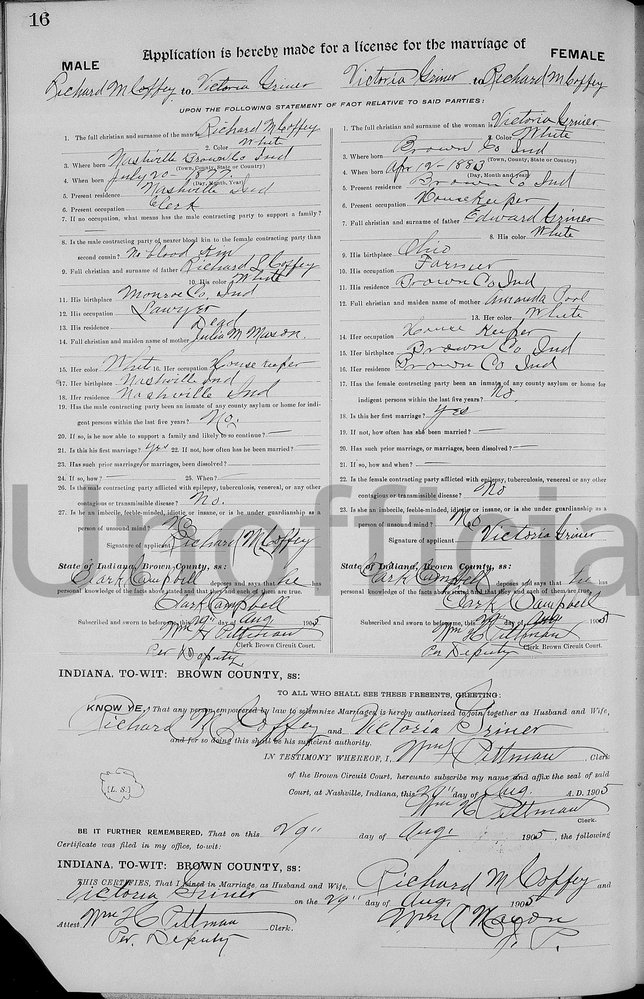 16
Application is hereby made for a license for the marriage of
MALE
FEMALE
Richard M Coffey to Victoria Griner
Victoria Griner to Richard M Coffey
UPON THE FOLLOWING STATEMENT OF FACT RELATIVE TO SAID PARTIES:
1. The full christian and surname of the man is Richard M Coffey
2. Color White
3. Where born Nashville Brown Co Ind
(Town, County, State or Country)
4. When born July 20
(Day, Month, Year)
5. Present residence Nashville Ind
6. Present occupation Clerk
7. If no occupation, what means has the male contracting party to support a family?
8. Is the male contracting party of nearer blood kin to the female contracting party than
second cousin? No blood Kin
9. Full christian and surname of father Richard Coffey
10. His color White
11. His birthplace Monroe Co, Ind
12. His occupation Lawyer
13. His residence Dead
14. Full christian and maiden name of mother Julia M Mason.
15. Her color White 16. Her occupation House Keeper
17. Her birthplace Nashville Ind
18. Her residence Nashville Ind
19. Has the male contracting party been an inmate of any county asylum or home for indi-
gent persons within the last five years? No.
20. If so, is he now able to support a family and likely to so continue? —
21. Is this his first marriage? Yes 22. If not, how often has he been married? —
23. Has such prior marriage, or marriages, been dissolved? —
24. If so, how? — 25. When? —
26. Is the male contracting party afflicted with epilepsy, tuberculosis, venereal, or any other
contagious or transmissible disease? No.
27. Is he an imbecile, feeble-minded, idiotic or insane, or is he under guardianship as a
person of unsound mind? No
Signature of applicant Richard M Coffey
State of Indiana, Brown County, ss:
Clark Campbell deposes and says that he has
personal knowledge of the facts above stated and that they and each of them are true.
Clark Campbell
Subscribed and sworn to before me, this 29" day of Aug 1905
Wm H Pittman
Clerk Brown Circuit Court.
Per Deputy
1. The full christian and surname of the woman is Victoria Griner
2. Color White
3. Where born Brown Co Ind
(Town, County, State or Country)
4. When born Apr 12 - 1883
(Day, Month and year)
5. Present residence Brown Co Ind
6. Present occupation House Keeper
7. Full christian and surname of father Edward Griner
8. His color White
9. His birthplace Ohio
10. His occupation Farmer
11. His residence Brown Co Ind
12. Full christian and maiden name of mother Amanda Pool
13. Her color White
14. Her occupation House Keeper
15. Her birthplace Brown Co Ind
16. Her residence Brown Co Ind
17. Has the female contracting party been an inmate of any county asylum or home for
indigent persons within the last five years? No.
18. Is this her first marriage? Yes
19. If not, how often has she been married? —
20. Has such prior marriage, or marriages, been dissolved? —
21. If so, how and when? —
22. Is the female contracting party afflicted with epilepsy, tuberculosis, venereal, or any other
contagious or transmissible disease? No
23. Is she an imbecile, feeble-minded, idiotic or insane, or is she under guardianship as a
person of unsound mind? No
Signature of applicant Victoria Griner
State of Indiana, Brown County, ss:
Clark Campbell deposes and says that he has
personal knowledge of the facts above stated and that they and each of them are true.
Clark Campbell
Subscribed and sworn to before me, this 29" day of Aug 1905
Wm H Pittman
Clerk Brown Circuit Court.
Per Deputy
Unofficial
INDIANA, TO-WIT: BROWN COUNTY, ss:
TO ALL WHO SHALL SEE THESE PRESENTS, GREETING:
KNOW YE, That any person empowered by law to solemnize Marriages, is hereby authorized to join together as Husband and Wife,
Richard M Coffey and Victoria Griner
and for so doing this shall be his sufficient authority.
IN TESTIMONY WHEREOF, I, Wm H Pittman Clerk
of the Brown Circuit Court, hereunto subscribe my name and affix the seal of said
[L. S.]
Court, at Nashville, Indiana, this 29" day of Aug. A. D. 1905
Wm H Pittman
Clerk.
BE IT FURTHER REMEMBERED, That on this 29" day of Aug 1905, the following
Certificate was filed in my office, to-wit:
INDIANA, TO-WIT: BROWN COUNTY, ss:
THIS CERTIFIES, That I joined in Marriage as Husband and Wife, Richard M Coffey and
Victoria Griner on the 29" day of Aug 1905
Attest Wm H Pittman Clerk.
Wm A Mason
Per. Deputy
J. P.